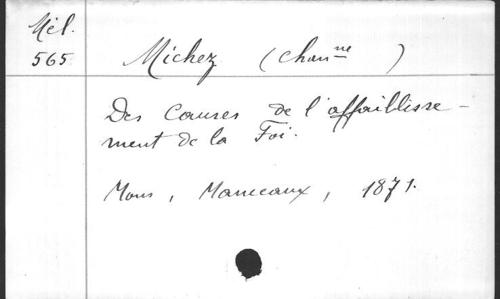 Mél.
565 Michez (chan.ne )
Des causes de l'affaiblisse-
ment de la Foi.
Mons, Manceaux, 1871.